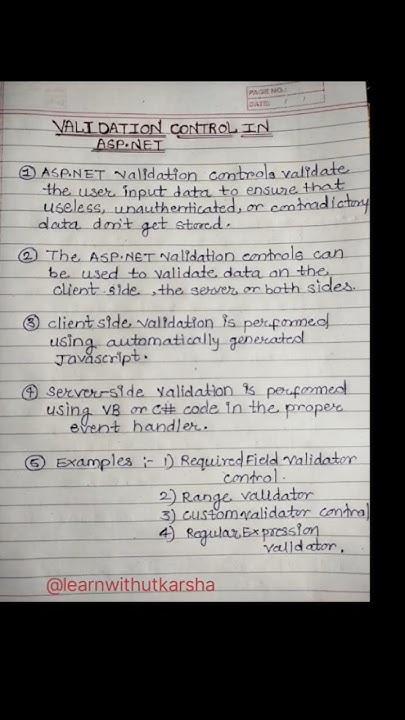 PAGE NO.:
DATE: / /
VALIDATION CONTROL IN
ASP.NET
① ASP.NET validation controls validate
the user input data to ensure that
useless, unauthenticated, or contradictory
data don't get stored.
② The ASP.NET validation controls can
be used to validate data on the
client side, the server or both sides.
③ client side validation is performed
using automatically generated
Javascript.
④ server-side validation is performed
using VB or C# code in the proper
event handler.
⑤ Examples :- 1) RequiredField validator
control.
2) Range validator
3) customvalidator control
4) RegularExpression
validator.
@learnwithutkarsha